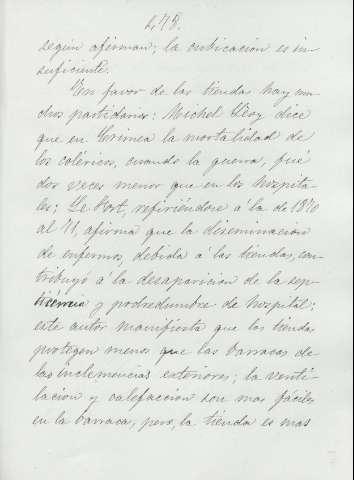 478.
segun afirman; la cubicacion es in-
suficiente.
En favor de las tiendas hay mu-
chos partidarios: Michel Levy dice
que en Crimea la mortalidad de
los coléricos, cuando la guerra, fué
dos veces menor que en los hospita-
les; Le Fort, refiriéndose á la de 1870
al 71, afirma que la diseminacion
de enfermos, debida á las tiendas, con-
tribuyó á la desaparicion de la sep-
ticemia y podredumbre de hospital;
este autor manifiesta que las tiendas
protegen menos que las barracas de
las inclemencias exteriores; la venti-
lacion y calefaccion son mas fáciles
en la barraca; pero, la tienda es mas